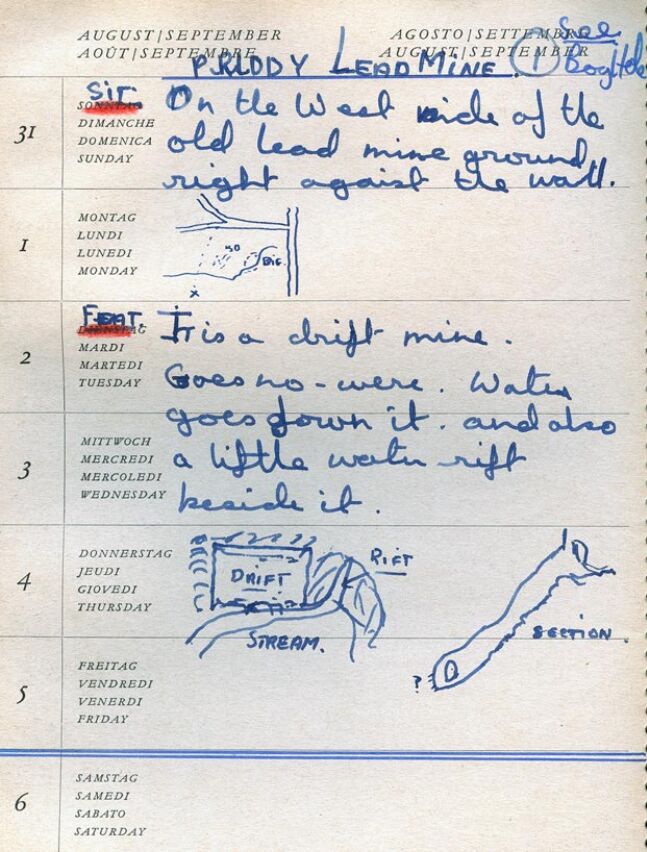 AUGUST | SEPTEMBER AGOSTO | SETTEMBRE See
AOÛT | SEPTEMBRE AUGUST | SEPTEMBER
PRIDDY LEAD MINE. 1
31
SIT.
SONNTAG
DIMANCHE
DOMENICA
SUNDAY
On the West side of the
old lead mine ground
right agaist the wall.
1
MONTAG
LUNDI
LUNEDI
MONDAY
DIG.
x
2
FEAT.
DIENSTAG
MARDI
MARTEDI
TUESDAY
It is a drift mine.
Goes no-were. Water
goes down it. and also
3
MITTWOCH
MERCREDI
MERCOLEDI
WEDNESDAY
a little water rift
beside it.
4
DONNERSTAG
JEUDI
GIOVEDI
THURSDAY
DRIFT
RIFT
STREAM.
SECTION.
?
5
FREITAG
VENDREDI
VENERDI
FRIDAY
6
SAMSTAG
SAMEDI
SABATO
SATURDAY